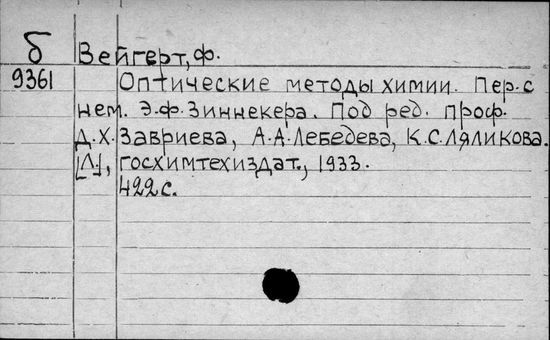 б Вейгерт, Ф.
9361 Оптические методы химии. Пер. с
нем. Э.Ф. Зиннекера. Под ред. проф.
Д.Х. Завриева, А.А. Лебедева, К.С. Ляликова.
[Л.], Госхимтехиздат, 1933.
422 с.